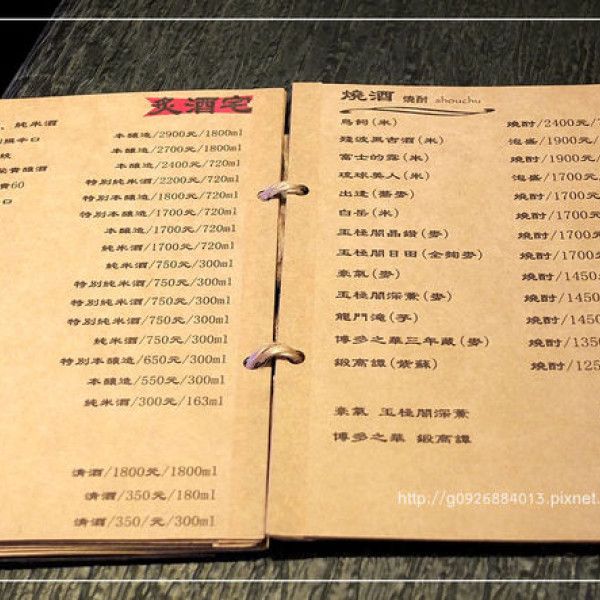 炙酒宅
、純米酒
本釀造/2900元/1800ml
本釀造/2700元/1800ml
本釀造/2400元/720ml
特別純米酒/2200元/720ml
特別本釀造/1800元/720ml
特別本釀造/1700元/720ml
本釀造/1700元/720ml
純米酒/1700元/720ml
純米酒/750元/300ml
特別純米酒/750元/300ml
特別純米酒/750元/300ml
特別純米酒/750元/300ml
純米酒/750元/300ml
特別本釀造/650元/300ml
本釀造/550元/300ml
純米酒/300元/163ml
清酒/1800元/1800ml
清酒/350元/180ml
清酒/350/元/300ml
燒酒 燒酎 shouchu
鳥飼(米) 燒酎/2400元/7
殘波黑古酒(米) 泡盛/1900元/
富士的露(米) 燒酎/1900元/
琉球美人(米) 泡盛/1700元/
出逢(蕎麥) 燒酎/1700元/
白岳(米) 燒酎/1700元
玉桂閣晶鑽(麥) 燒酎/1700元
玉桂閣日田(全麴麥) 燒酎/1700元
豪氣(麥) 燒酎/1450元
玉桂閣深薰(麥) 燒酎/1450
龍門滝(芋) 燒酎/1450
博多之華三年藏(麥) 燒酎/1350
鍛高譚(紫蘇) 燒酎/125
豪氣 玉桂閣深薰
博多之華 鍛高譚
http://g0926884013.pixnet.